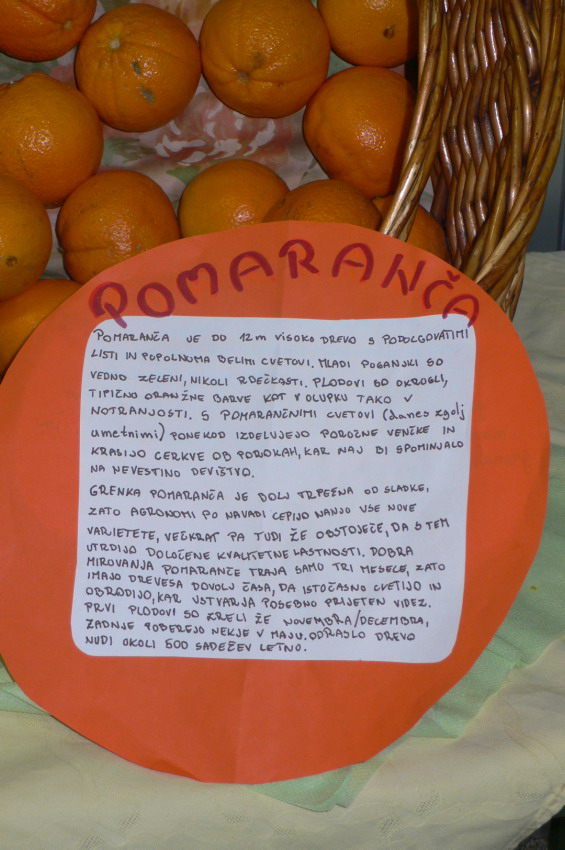 POMARANČA
POMARANČA JE DO 12m VISOKO DREVO S PODOLGOVATIMI
LISTI IN POPOLNOMA BELIMI CVETOVI. MLADI POGANJKI SO
VEDNO ZELENI, NIKOLI RDEČKASTI. PLODOVI SO OKROGLI,
TIPIČNO ORANŽNE BARVE KOT V OLUPKU TAKO V
NOTRANJOSTI. S POMARANČNIMI CVETOVI (danes zgolj
umetnimi) PONEKOD IZDELUJEJO POROČNE VENČKE IN
KRASIJO CERKVE OB POROKAH, KAR NAJ BI SPOMINJALO
NA NEVESTINO DEVIŠTVO.
GRENKA POMARANČA JE BOLJ TRPEŽNA OD SLADKE,
ZATO AGRONOMI PO NAVADI CEPIJO NANJO VSE NOVE
VARIETETE, VEČKRAT PA TUDI ŽE OBSTOJEČE, DA S TEM
UTRDIJO DOLOČENE KVALITETNE LASTNOSTI. DOBA
MIROVANJA POMARANČE TRAJA SAMO TRI MESECE, ZATO
IMAJO DREVESA DOVOLJ ČASA, DA ISTOČASNO CVETIJO IN
OBRODIJO, KAR USTVARJA POSEBNO PRIJETEN VIDEZ.
PRVI PLODOVI SO ZRELI ŽE NOVEMBRA/DECEMBRA,
ZADNJE POBEREJO NEKJE V MAJU. ODRASLO DREVO
NUDI OKOLI 500 SADEŽEV LETNO.